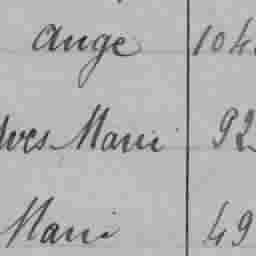 Ange 104
Yves Marie 92
Marie 49